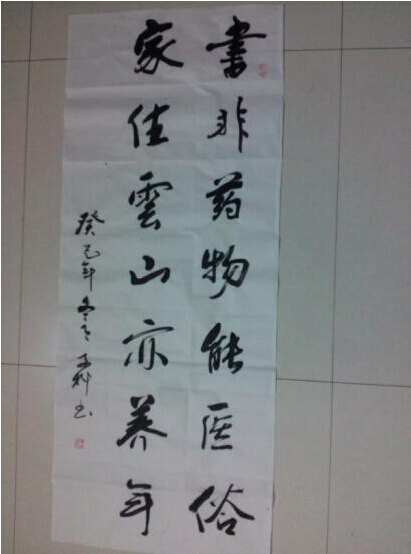 書非药物能医俗
家住雲山亦养年
癸巳年冬书